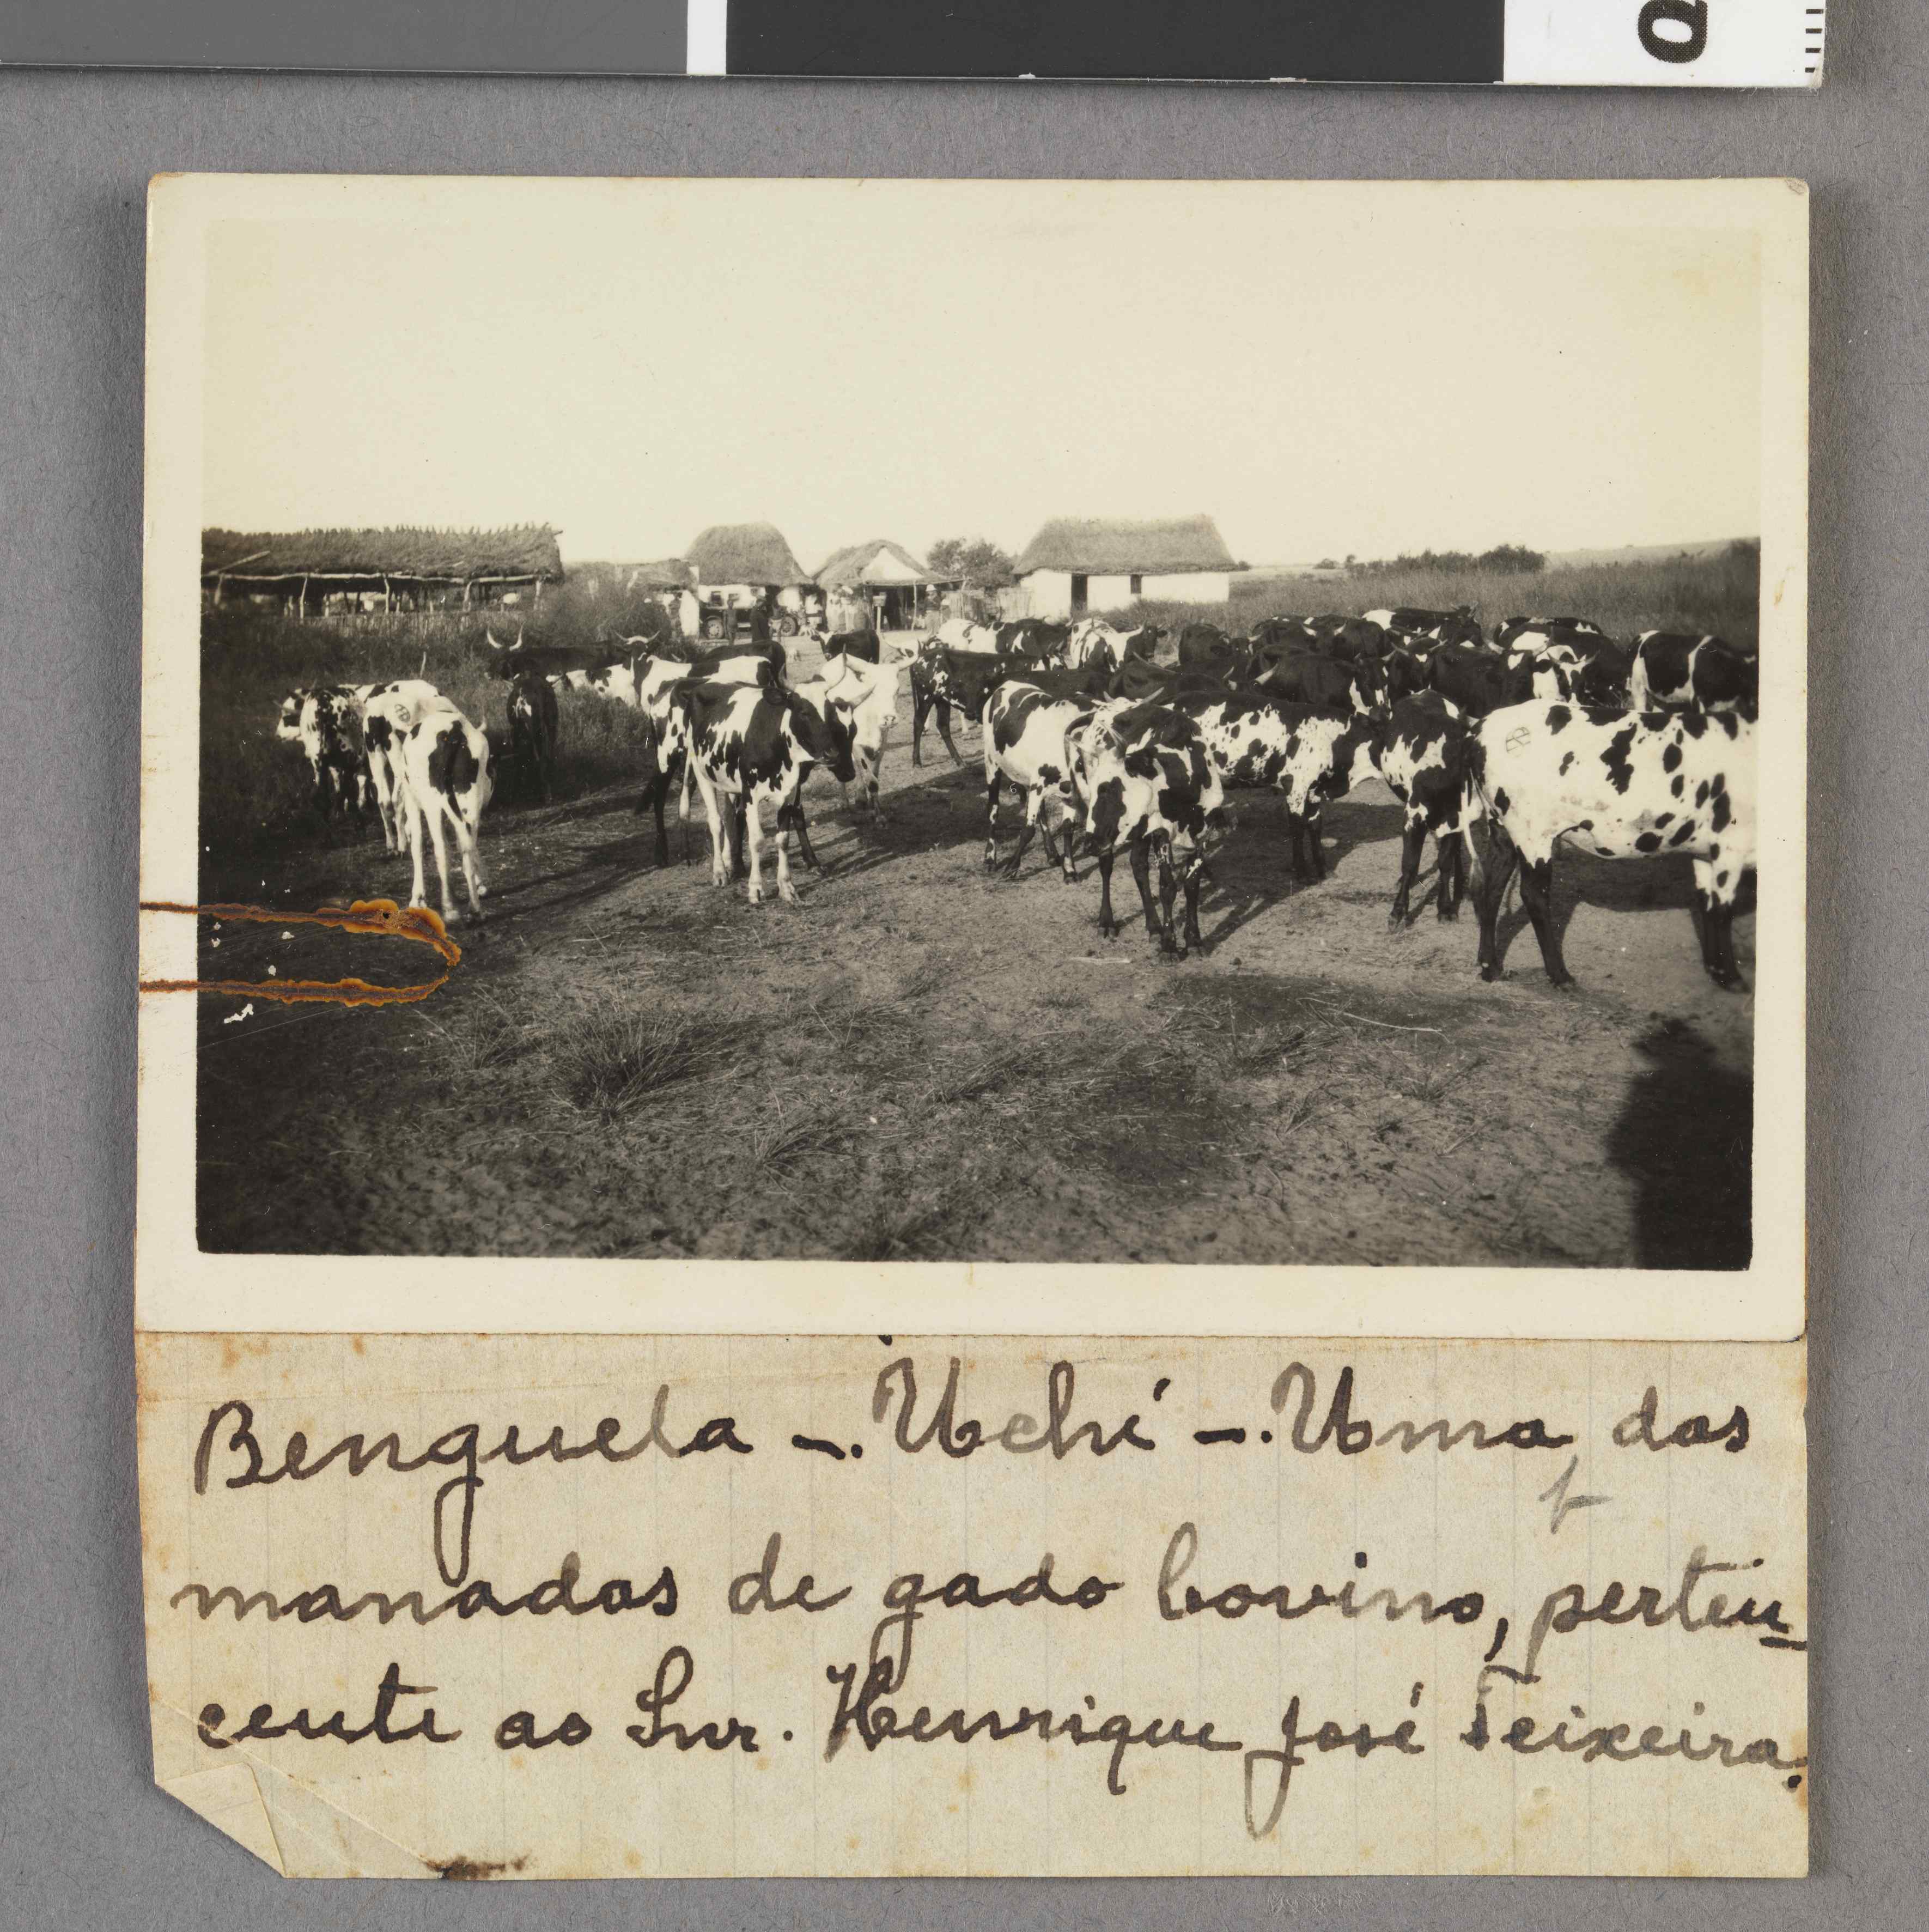 Benguela -. Uchí -. Uma das
manadas de gado bovino, perten-
cente ao Snr. Henrique José Teixeira.